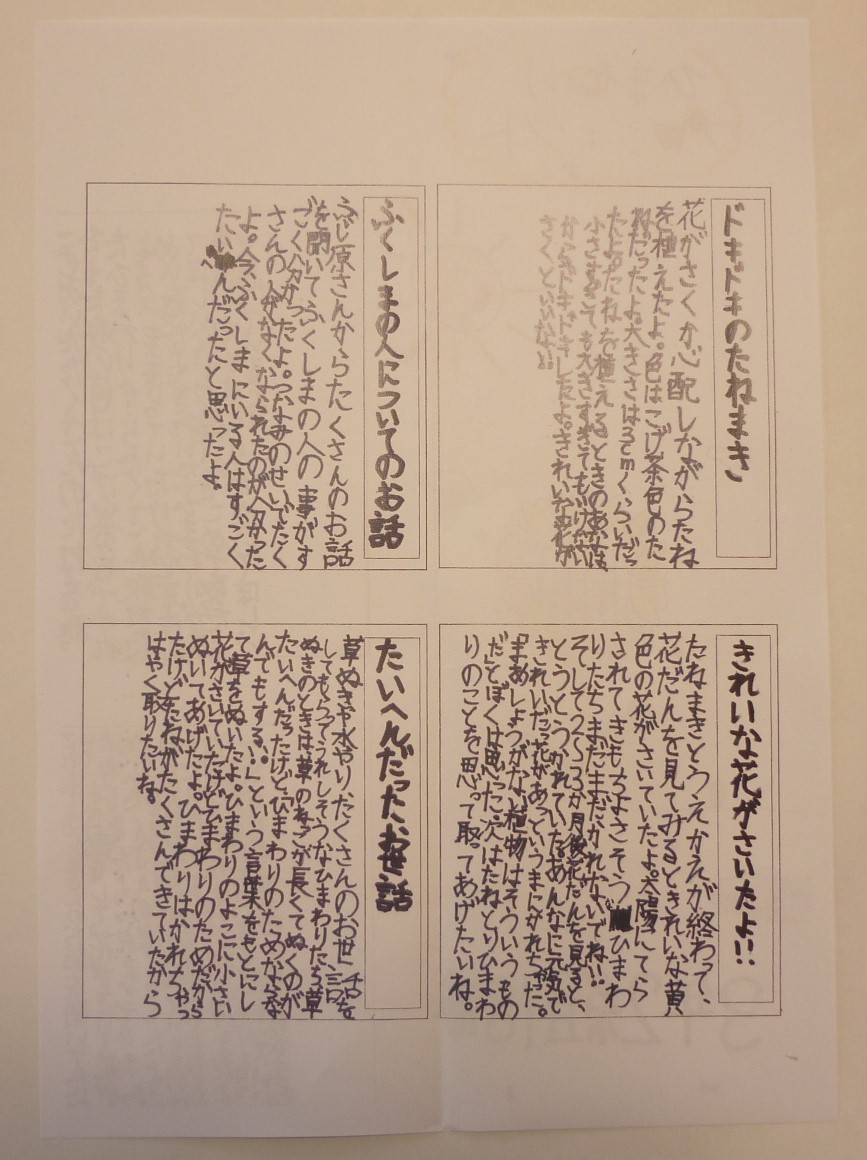 ドキドキのたねまき
花がさくか心配しながらたね
を植えたよ。色はこげ茶色のた
ねだったよ。大きさは3cmくらいだっ
たよ。たねを植えるときのあなは、
小さすぎても大きすぎてもいけない
からドキドキしたよ。きれいな花が
さくといいな…
ふくしまの人についてのお話
ふじ原さんからたくさんのお話
を聞いてふくしまの人の事がす
ごく分かったよ。つなみのせいでたく
さんの人がなくなられたのが分かった
よ。今ふくしまにいる人はすごく
たいへんだったんだと思ったよ。
きれいな花がさいたよ!!
たねまきとうえかえが終わって、
花だんを見てみるときれいな黄
色の花がさいていたよ。太陽にてら
されてきもちよさそう ひまわ
りたちまだまだかれないでね!!
そして2〜3か月後花だんを見ると、
とうとうかれていた。あんなに元気で
きれいだった花があっというまにかれちゃった。
「まあしょうがない植物はそういうもの
だ」とぼくは思った。次はたねとりひまわ
りのことを思って取ってあげたいね。
たいへんだったお世話
草ぬきや水やり、たくさんのお世話を
してもらってうれしそうなひまわりたち草
ぬきのときは草のねっこが長くてぬくのが
たいへんだったけど「ひまわりのためならな
んでもする…」という言葉をもとにし
て草をぬいたよ。ひまわりのよこに小さい
花がさいていたけどひまわりのためだから
ぬいてあげたよ。ひまわりはかれちゃっ
たけどたねがたくさんできていたから
はやく取りたいね。